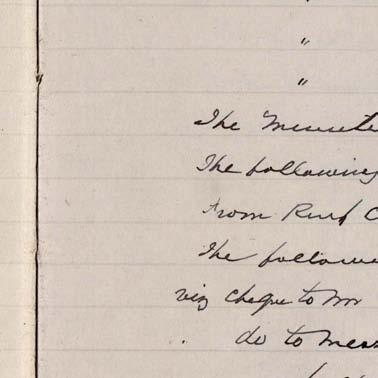 "
"
"
The Minute
The following
From
The follow
viz cheque to Mr
do to Mess